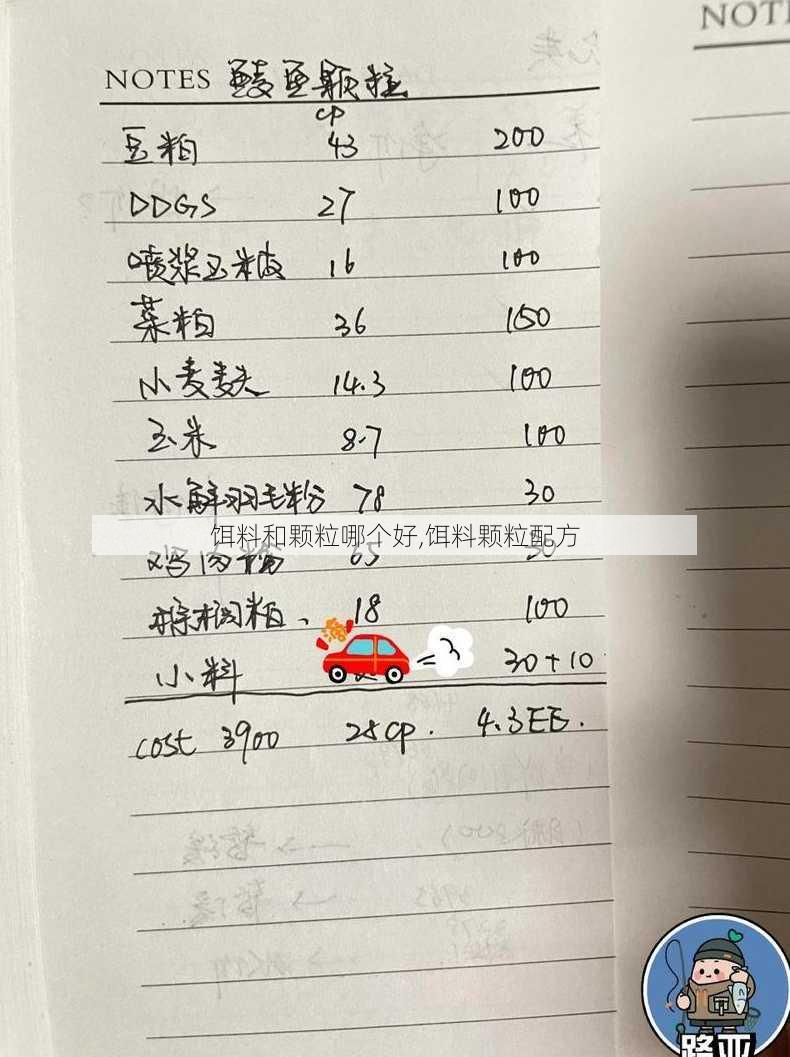 NOTES 鲮鱼颗粒
NOTE
CP
豆粕 43 200
DDGS 27 100
喷浆玉米皮 16 100
菜粕 36 150
小麦麸 14.3 100
玉米 8.7 100
水解羽毛粉 78 30
饵料和颗粒哪个好,饵料颗粒配方
鸡肉粉 65 30
棕榈粕、 18 100
小料 =3 30+10
cost 3900 25cp. 4.3EE.
路亚